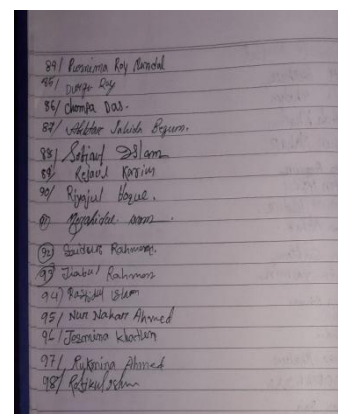 84/ Purnima Roy Mandal
85/ Durga Roy
86/ Champa Das.
87/ Akhtar Jahida Begum.
88/ Sofiaul Islam
89/ Rejaul Karim
90/ Riyajul Haque.
91/
92) Saidur Rahman.
93) Jiabul Rahman
94) Rashidul Islam
95/ Nur Nahar Ahmed
96/ Jesmina Khatun
97/ Rukmina Ahmed
98/ Rafikul Islam